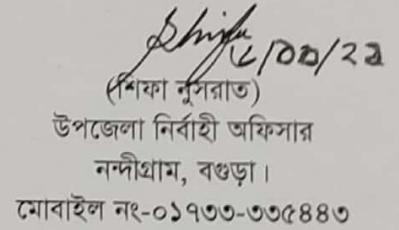 (শিফা নুসরাত)
উপজেলা নির্বাহী অফিসার
নন্দীগ্রাম, বগুড়া।
মোবাইল নং-০১৭৩৩-৩৩৫৪৪৩